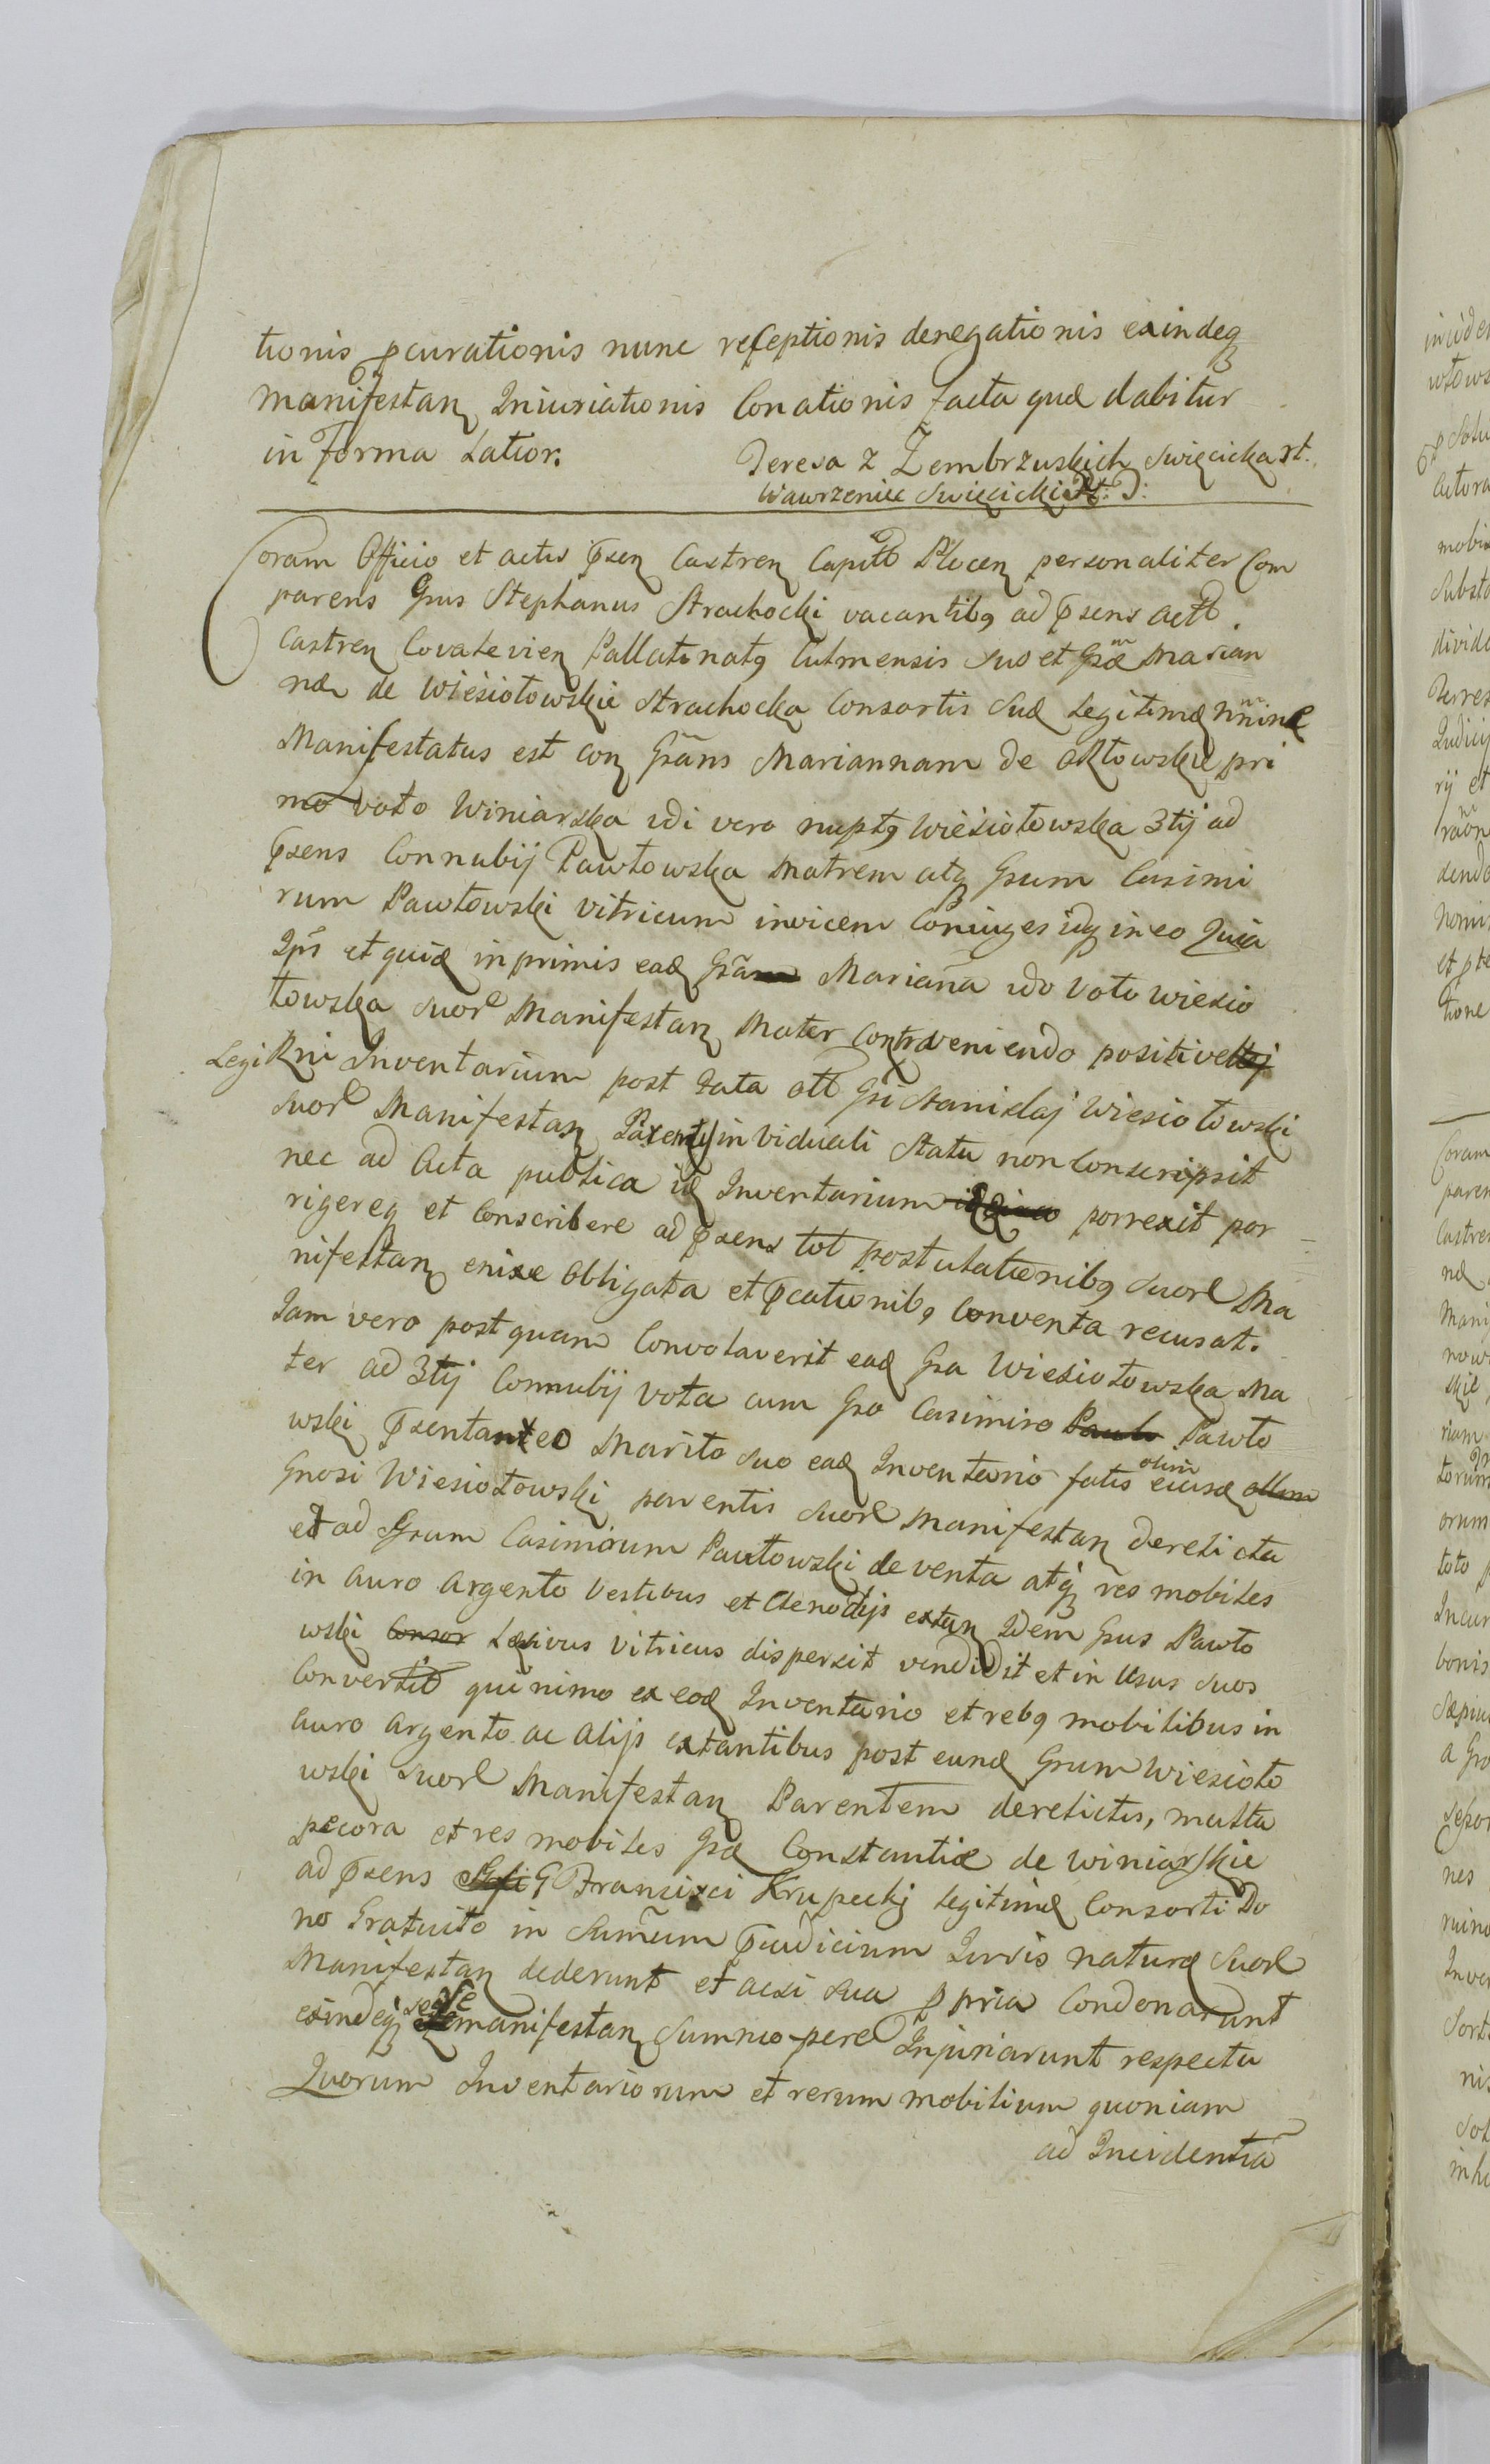 tionis pcurationis nunc receptionis denegationis exindeq
manifestan Iniuriationis Conationis facta quæ dabitur
in Forma Latior.
Teresa z Zembrzuskich Swięcicka st.
Wawrzeniec Swięcicki
Coram Officio et actis psen Castren Capit Plocen personaliter Com
parens Gsus Stephanus Strachocki vacantibq ad psens act
Castren Covalevien Pallatinatq Culmensis suo et Gsæ Marian
næ de Wiesiołowskie Strachocka Consortis suæ Legitimæ nnine
Manifestatus est con Gsāns Mariannam de pri
mo voto Winiarska 2di vero nuptq Wiesiołowska 3tij ad
psens Connubij Pawłowska Matrem atq Gsum Casimi
rum Pawłowski vitricum invicem Coniuges idq in eo Quia
Ipsi et quid inprimis ead Gsā Mariaña 2do voto Wiesio
łowska suor Manifestan Mater Contraveniendo positivę
Legi Rni Inventarium post fata ol Gsi Stanislaj Wiesiołowski
suor Manifestan Parentis in Viduali Statu non Conscripsit
nec ad Acta publica id Inventarium porrexit por
rigereq et Conscribere ad psens tot postulationibq suor Ma
nifestan enixe Obligata et pcationibq Conventa recusat.
Iam vero postquam Convolaverit ead Gsa Wiesiołowska Ma
ter ad 3tij Connubij vota cum Gso Casimiro Pawło Pawło
wski psentaneo Marito suo ead Inventario fatis olim eiusd ollim
Gnosi Wiesiołowski parentis suor Manifestan derelicta
et ad Gsum Casimirum Pawłowski deventa atq res mobiles
in auro argento Vestibus et Clenodijs extan Idem Gsus Pawło
wski Consor Læsivus vitricus dispersit vendidit et in Usus suos
Convertit quinimo ex eod Inventario et rebq mobilibus in
auro argento ac alijs extantibus post eund Gsum Wiesioło
wski suor Manifestan Parentem derelictis, multa
pecora et res mobiles Gsæ Constantiæ de Winiarskie
ad psens G Francisci Krupeckj Legitimæ Consorti Do
no Gratuito in Sum̃um pjudicium Iuris naturæ suor
Manifestan dederunt et acsi sua ppria Condonarunt
exindeq sese manifestan summopere Injuriarunt respectu
Quorum Inventariorum et rerum mobilium quoniam
ad Incidentiā